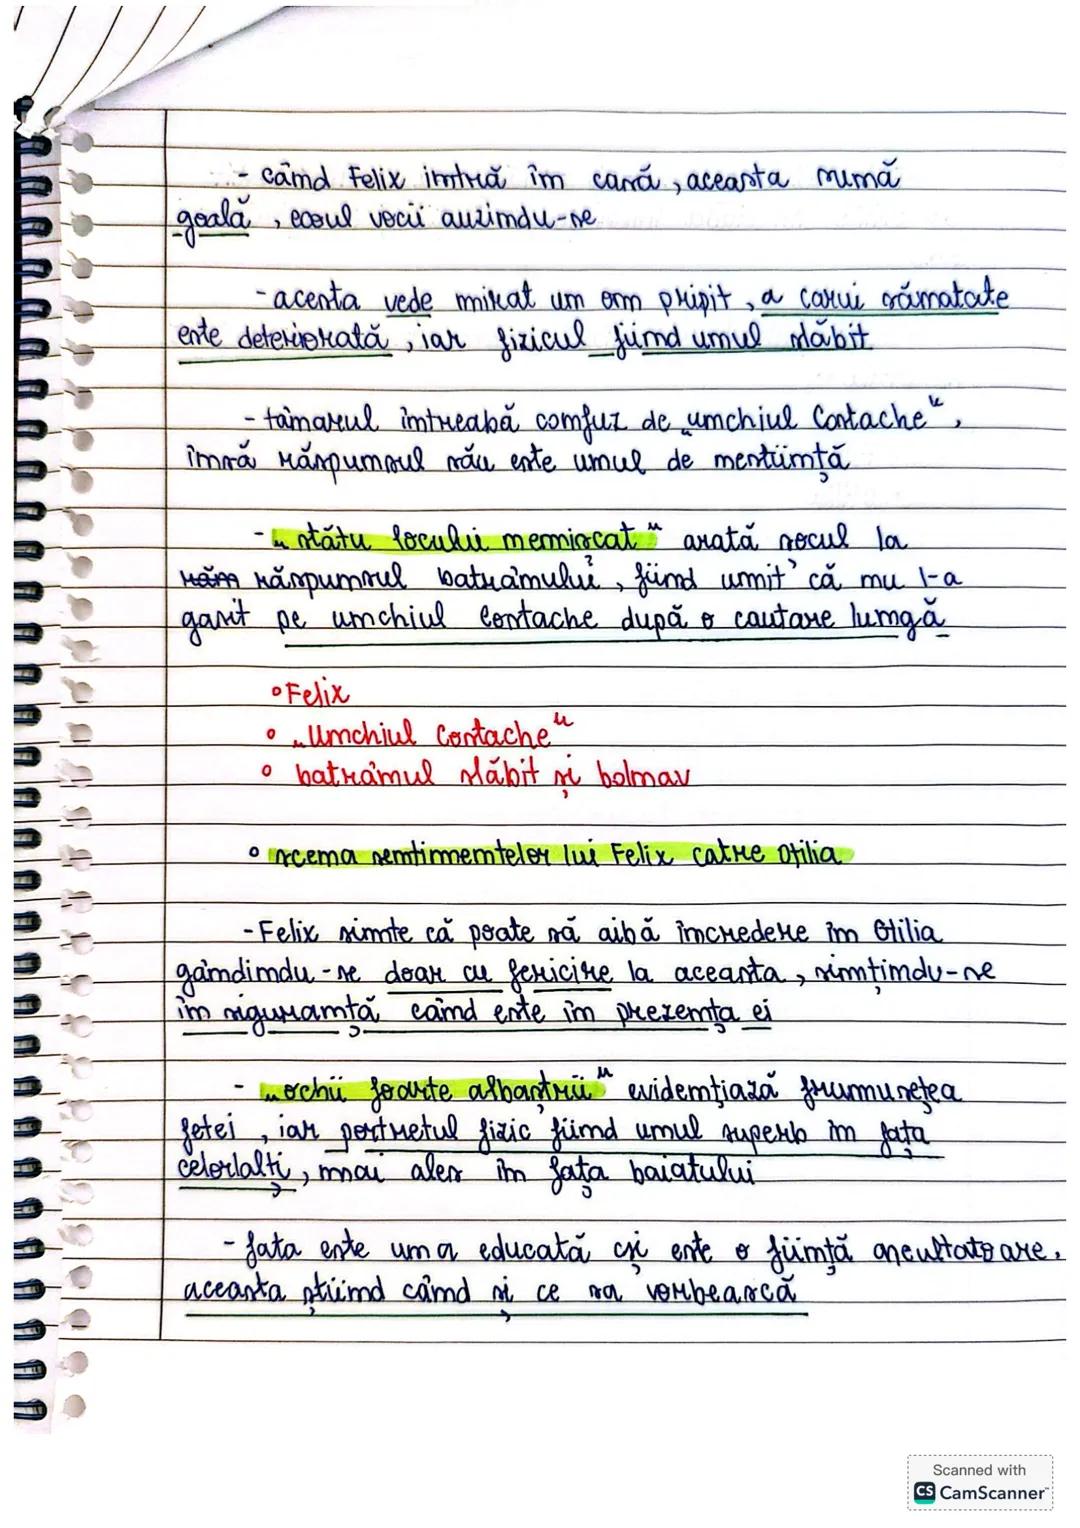 - când Felix intră în casă, aceasta sună
goală, ecoul vocii auzindu-se
- acesta vede mirat un om pripit, a carui sănatate
este deteriorată, iar fizicul fiind unul slăbit
- tânarul întreabă confuz de „unchiul Costache",
însă răspunsul său este unul de nestiință
- „stătu locului nemișcat" arată șocul la
răspunsul batrânului, fiind uimit că nu l-a
gasit pe unchiul Costache după o cautare lungă
° Felix
° „Unchiul Costache"
° batrânul slăbit și bolnav
° scena sentimentelor lui Felix catre Otilia
- Felix simte că poate să aibă încredere în Otilia
gândindu-se doar cu fericire la aceasta, simțindu-se
în siguranță când este în prezența ei
- „ochii foarte albaștrii" evidențiază frumusețea
fetei, iar portretul fizic fiind unul superb in fața
celorlalți, mai ales în fața baiatului
- fata este una educată și este o ființă ascultatoare,
aceasta știind când și ce sa vorbească
Scanned with
CS CamScanner